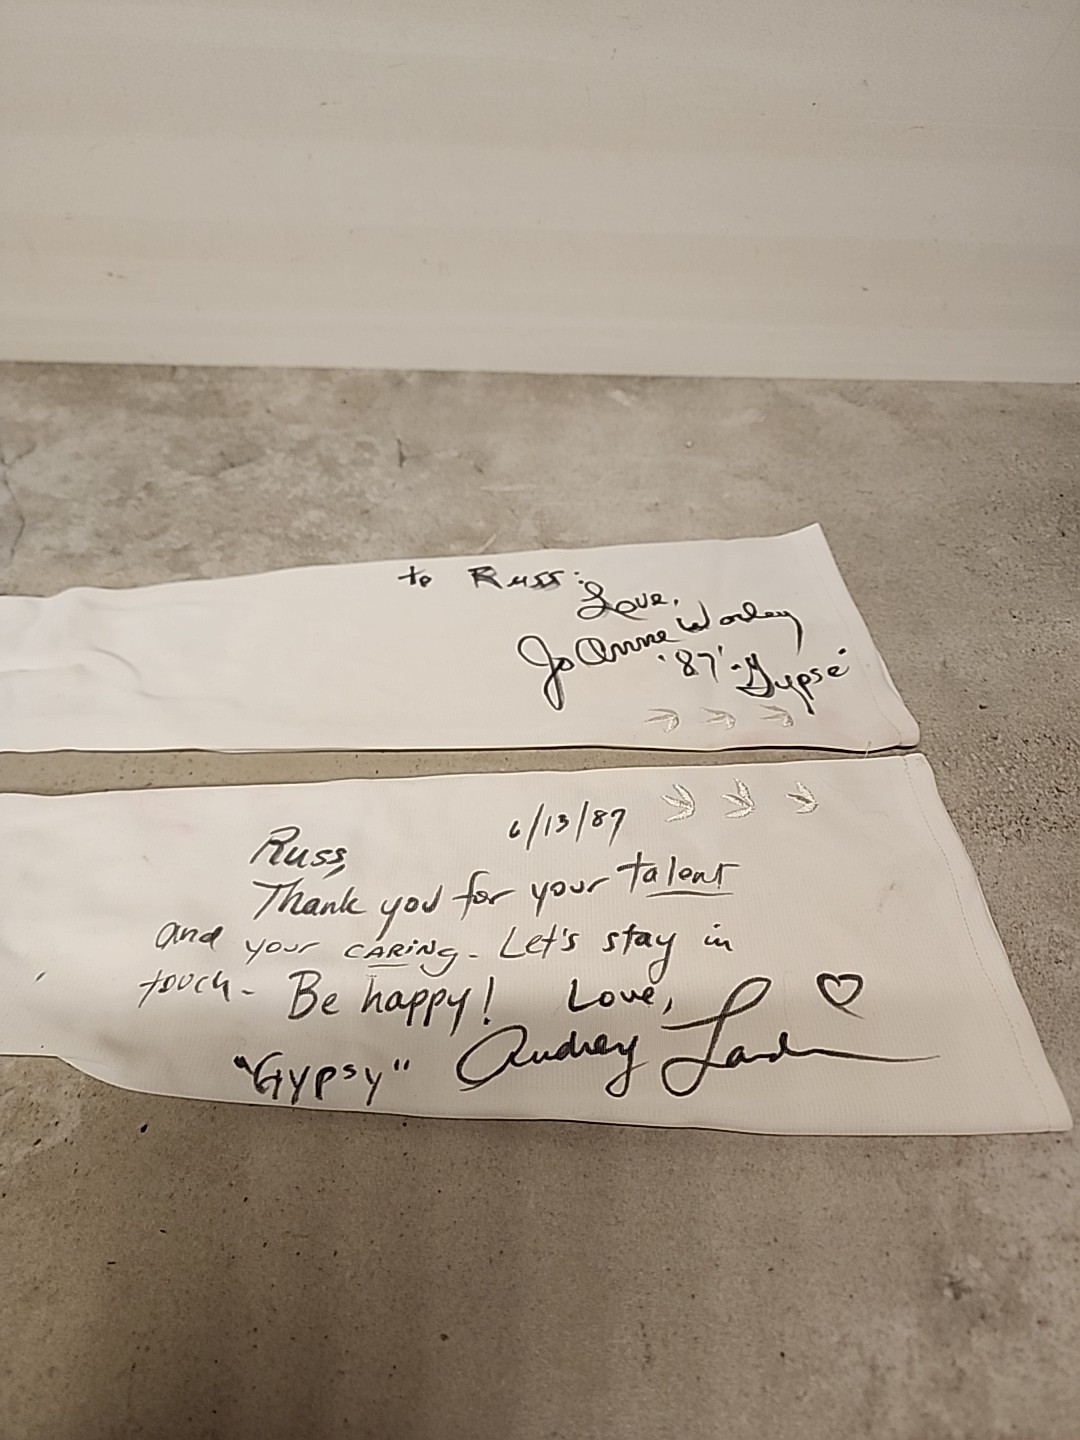 to Russ:
Love,
JoAnne Worley
'87'-Gypse'
6/13/87
Russ,
Thank you for your talent
and your CARING. Let's stay in
touch. Be happy! Love,
"Gypsy" Audrey